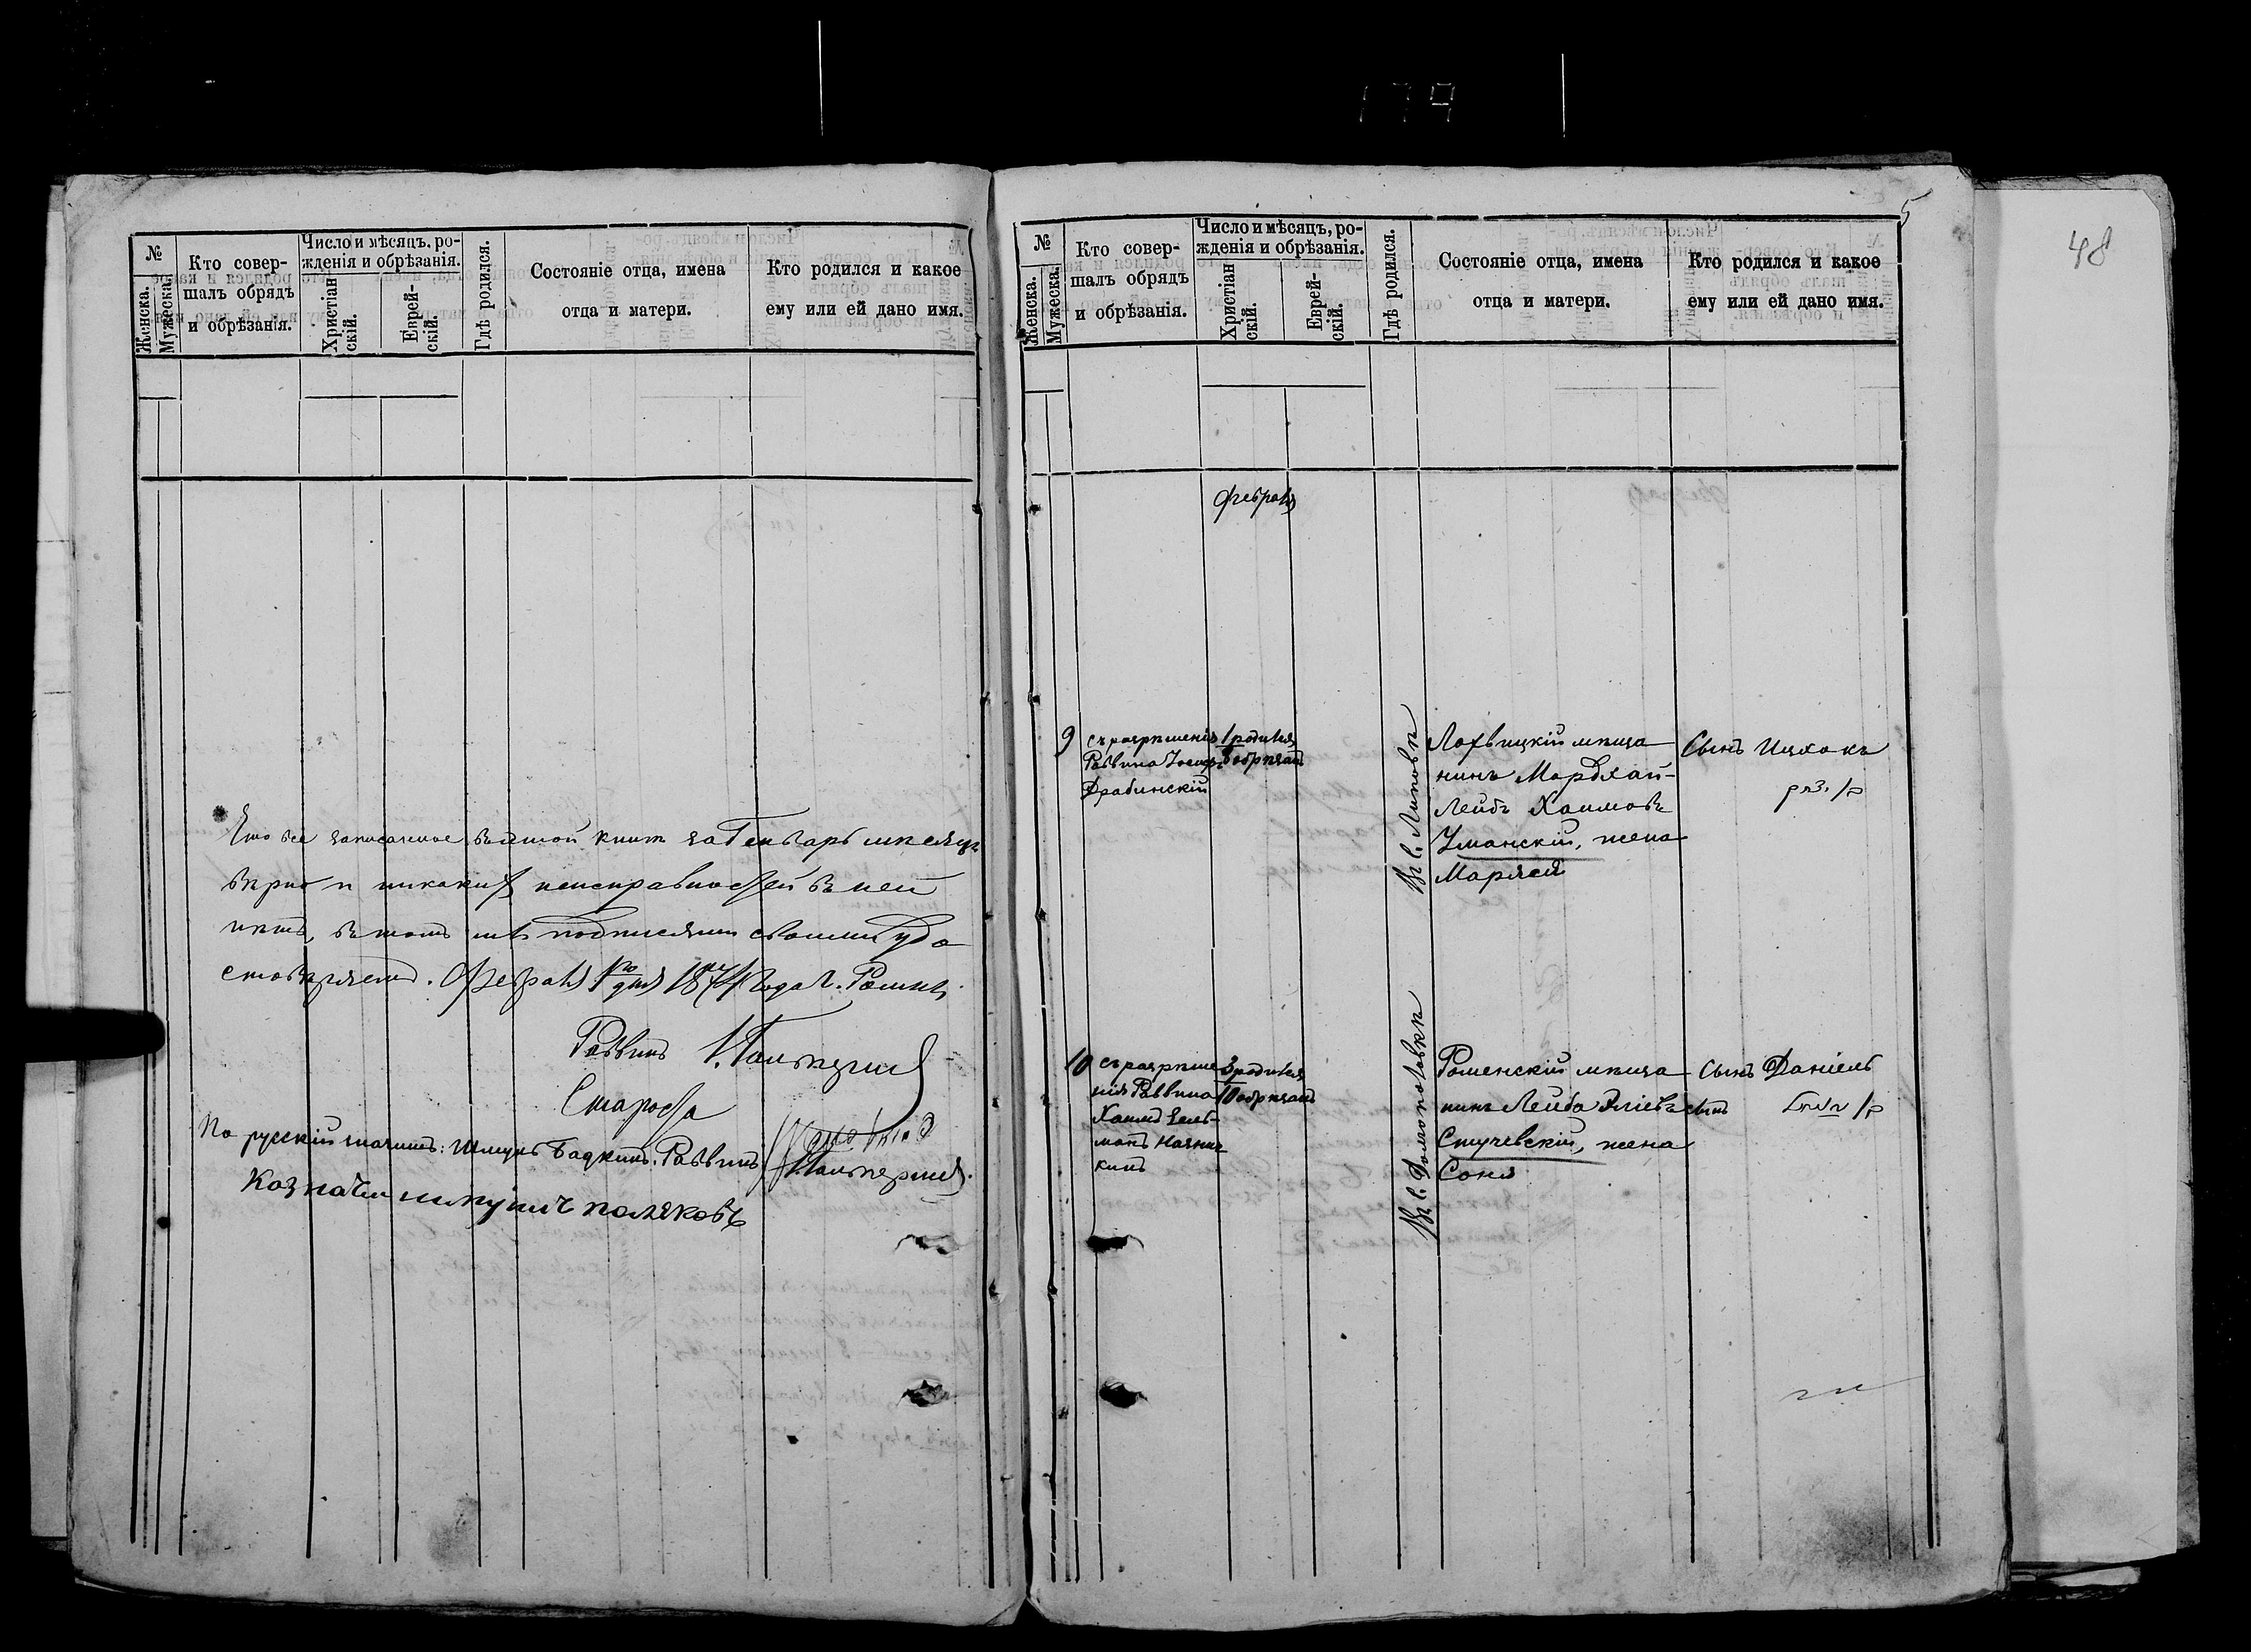 179
№
Женска.
Мужеска.
Кто совер-
шалъ обрядъ
и обрѣзанія.
Число и мѣсяцъ. ро-
жденія и обрѣзанія.
Христіан
скій.
Еврей-
скій.
Гдѣ родился.
Состояніе отца, имена
отца и матери.
Кто родился и какое
ему или ей дано имя.
Что все записанное въ этой книгѣ за Генварь мѣсяцъ
вѣрно и никакихъ неисправностей въ ней
нѣтъ, въ томъ мы подписями своими удо
стовѣряемъ. Февраля 1го дня 1874 года г. Ромны
Раввинъ
Староста
По русскій значитъ: Шмуль Бадкинъ. Раввинъ
Казначей поляковъ
5
48
№
Женска.
Мужеска.
Кто совер-
шалъ обрядъ
и обрѣзанія.
Число и мѣсяцъ, ро-
жденія и обрѣзанія.
Христіан
скій.
Еврей-
скій.
Гдѣ родился.
Состояніе отца, имена
отца и матери.
Кто родился и какое
ему или ей дано имя.
Февраля
9
съ разрѣшенія
Раввина Іосифъ
Драбинскій
1 родился
8 обрѣзанъ
въ с. Липовкѣ
Лохвицкій мѣща
нинъ Мордхай-
Лейбъ Хаимовъ
Уманскій, жена
Маряся
Сынъ Ицхокъ
בן יצחק
10
съ разрѣше
нія Раввина
Хаимъ Зель-
манъ
кинъ
3 родился
10 обрѣзанъ
въ с. Домопотовкѣ
Роменскій мѣща
нинъ Лейба Эліевъ сынъ
Стучевскій, жена
Соня
сынъ Даніель
בן דניאל